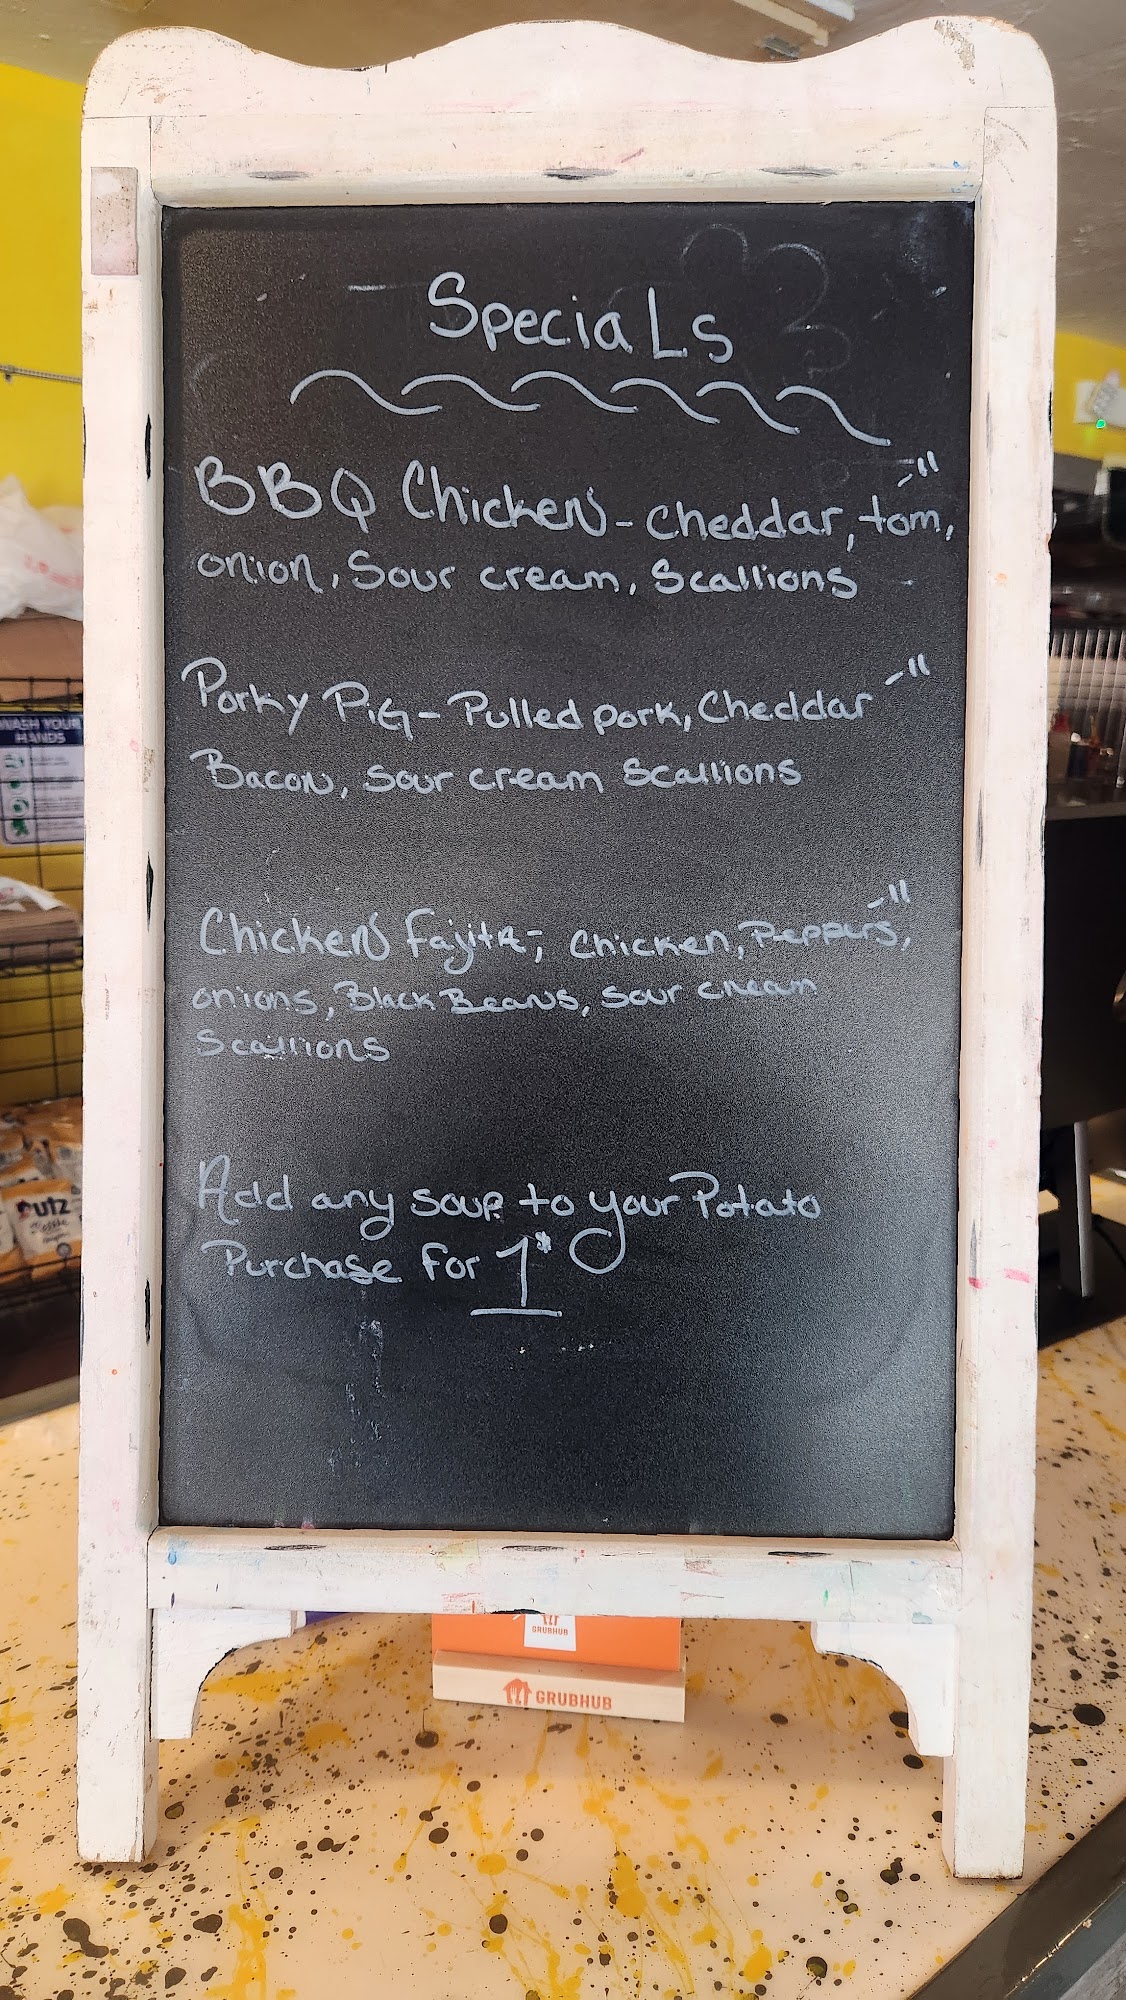 Specials
BBQ Chicken - Cheddar, tom, -11
onion, Sour cream, Scallions
Porky Pig - Pulled pork, Cheddar -11
Bacon, sour cream Scallions
Chicken fajita; Chicken, Peppers, -11
onions, Black Beans, sour cream
Scallions
Add any soup to your Potato
Purchase for 1$
WASH YOUR
HANDS
UTZ
GRUBHUB
GRUBHUB